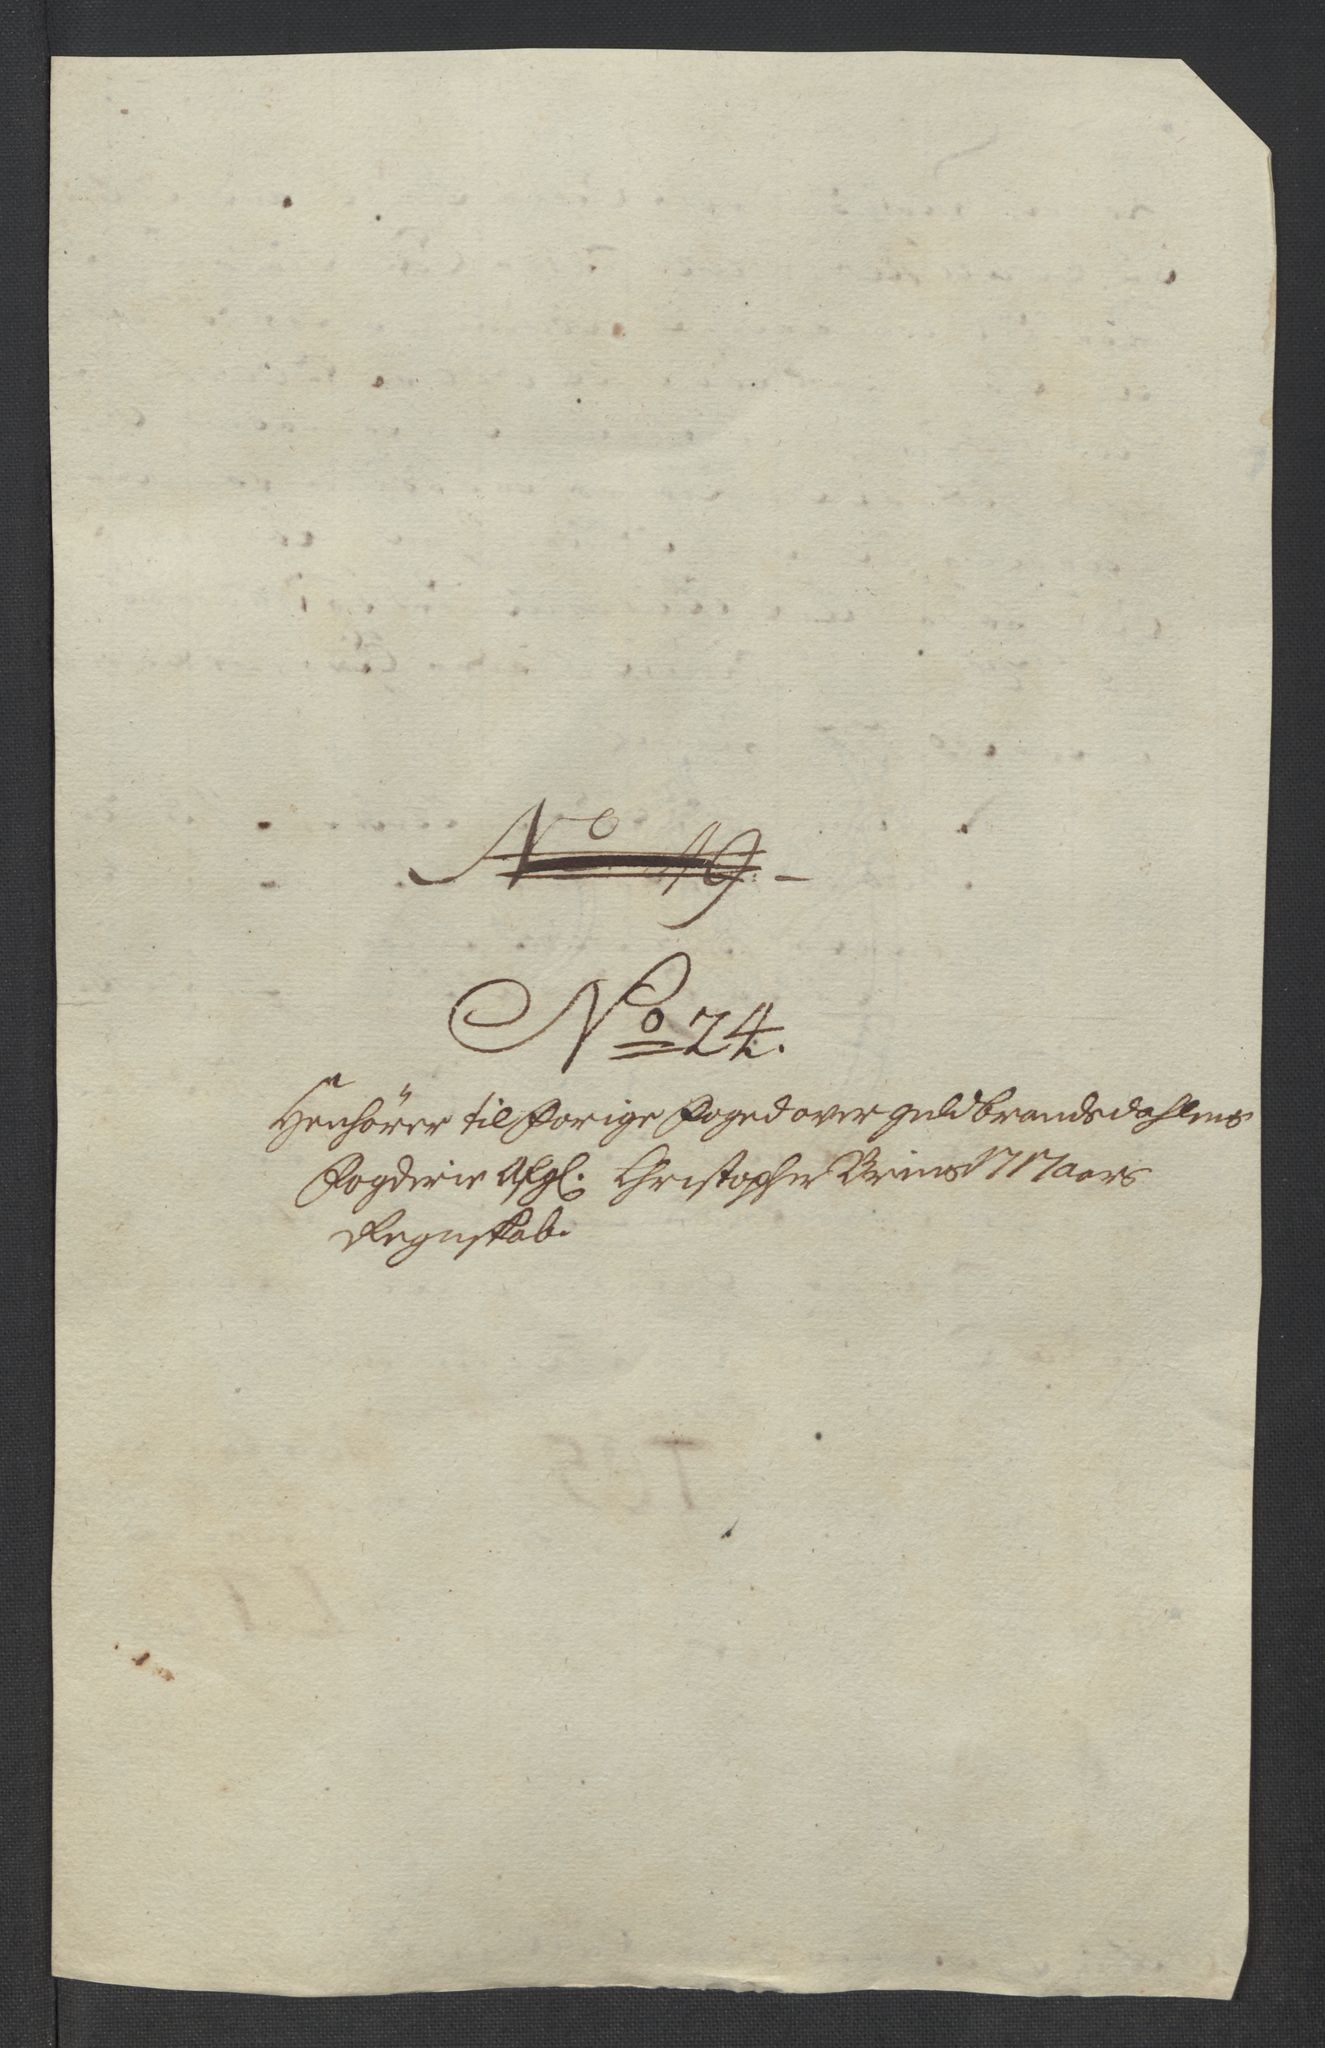 No 19.
No 24.
Henhörer til Forige Foged over Guldbrandsdahlens
Fogderie Afgl. Christopher Brims 1717 Aars
Regnskab.